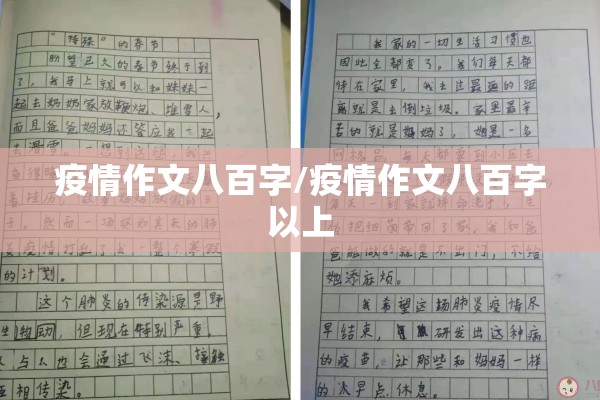 "特殊"的春节
盼望已久的春节终于到
了,我马上就可以和妹妹一
起去奶奶家放鞭炮、堆雪人,
而且爸爸妈妈还答应我一起
去滑雪。一想到这些,我兴
的计划。
这个肺炎的传染源是野
生动物,但现在特别严重,
人与人也会通过飞沫、接触
互相传染。
我家的一切生活习惯也
因此全都变了。我们每天都
待在家里,我去过最远的距
离就是去倒垃圾。家里最辛
苦的就是妈妈了,她是一名
网格员,每天都要到小区去
爸能做的就是不出门,不给
她添麻烦。
我希望这场肺炎疫情尽
早结束,研发出这种病
的疫苗,让那些和妈妈一样
的人早点休息。
疫情作文八百字/疫情作文八百字
以上